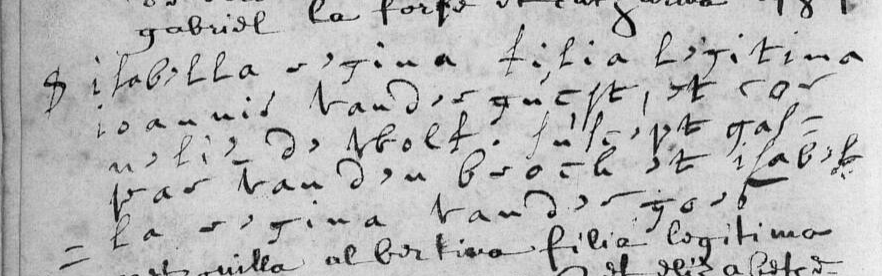 gabriel la forse et
8 isabella regina filia legitima
ioannis vander gucst, et cor
nelie de wolf. suscept gas=
par vanden broeck et isabel
= la regina vander goes
albertina filia legitima
et elisabet